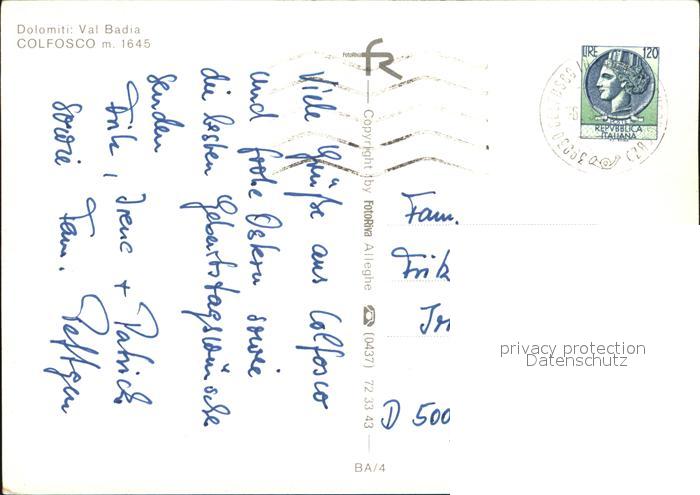 Dolomiti: Val Badia
COLFOSCO m. 1645
Viele Grüße aus Colfosco
und frohe Ostern sowie
die besten Geburtstagswünsche
senden
Fritz, Irene + Patrick
sowie Fam.
FotoRiva
fR
Copyright by FotoRiva Alleghe ☎ (0437) 72 33 43
BA/4
LIRE 120
POSTE
REPVBBLICA
ITALIANA
Fam.
Fritz
D 500
privacy protection
Datenschutz